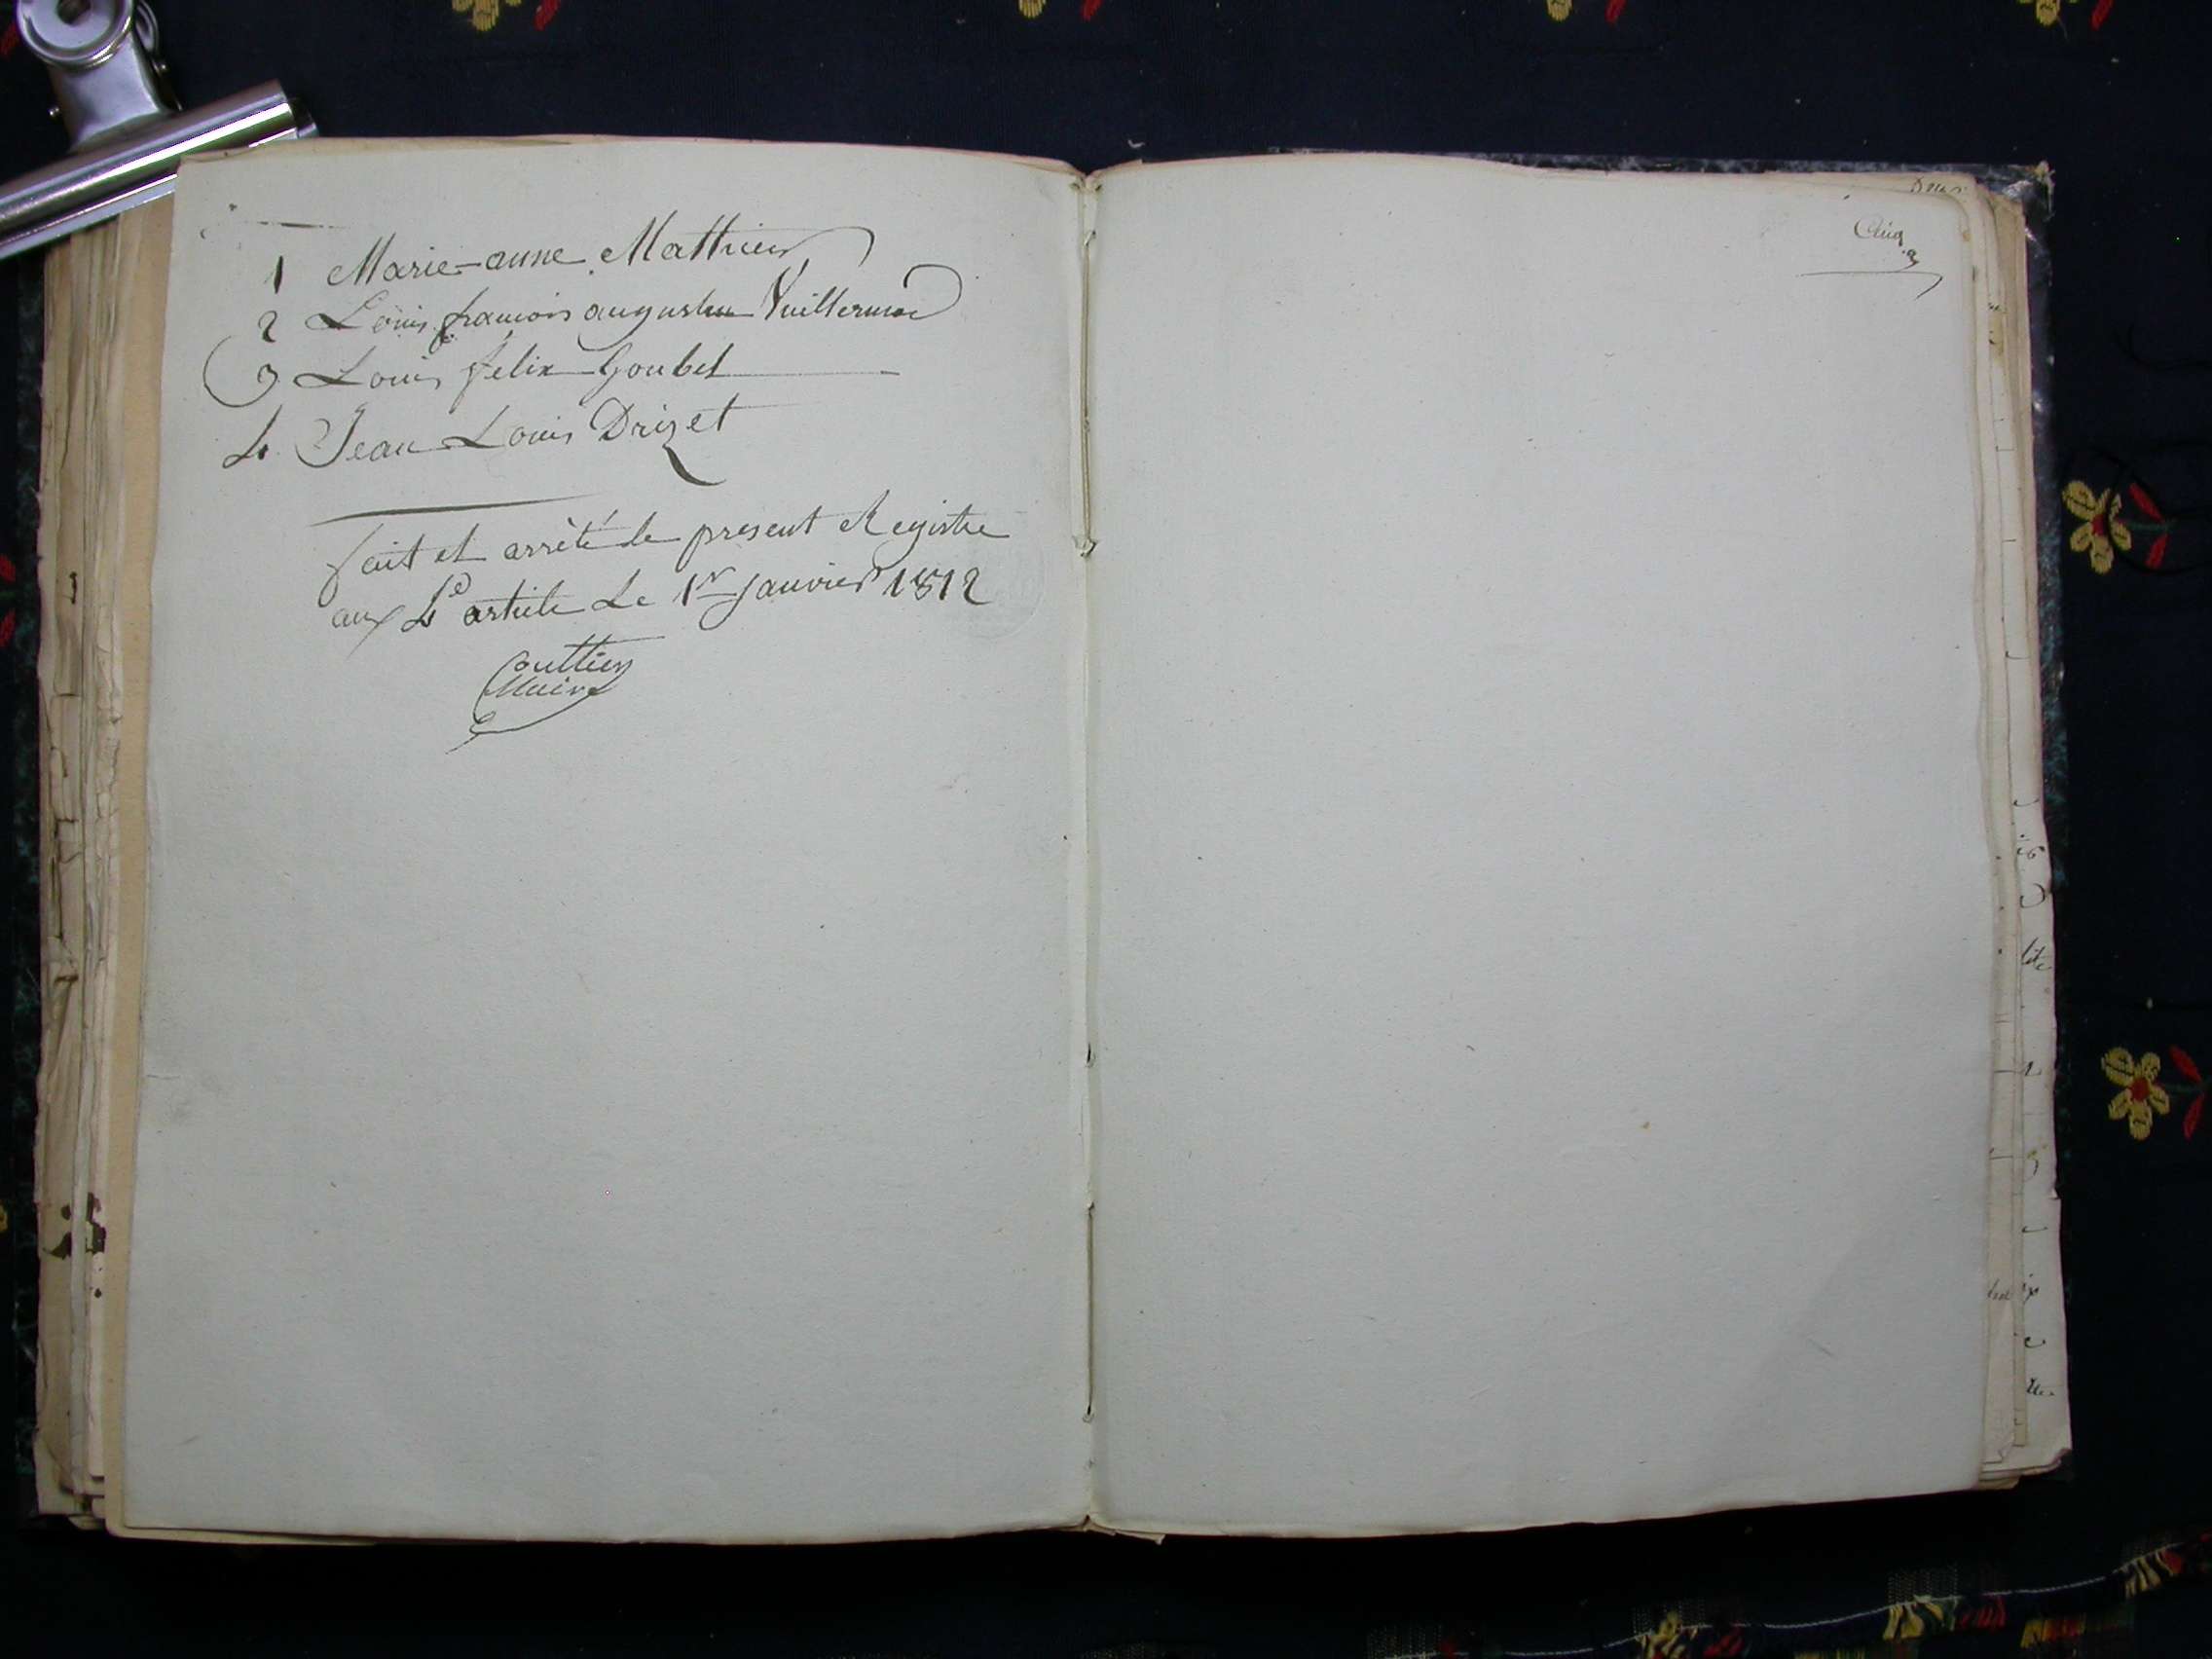 1 Marie-anne Mathieu
2 Louis francois augustin Vuillermoz
3 Louis felix Goubet
4 Jean Louis Drizet
fait et arrêté le present Registre
aux 4e article Le 1er janvier 1812
Gauthier
Maire
Cinq